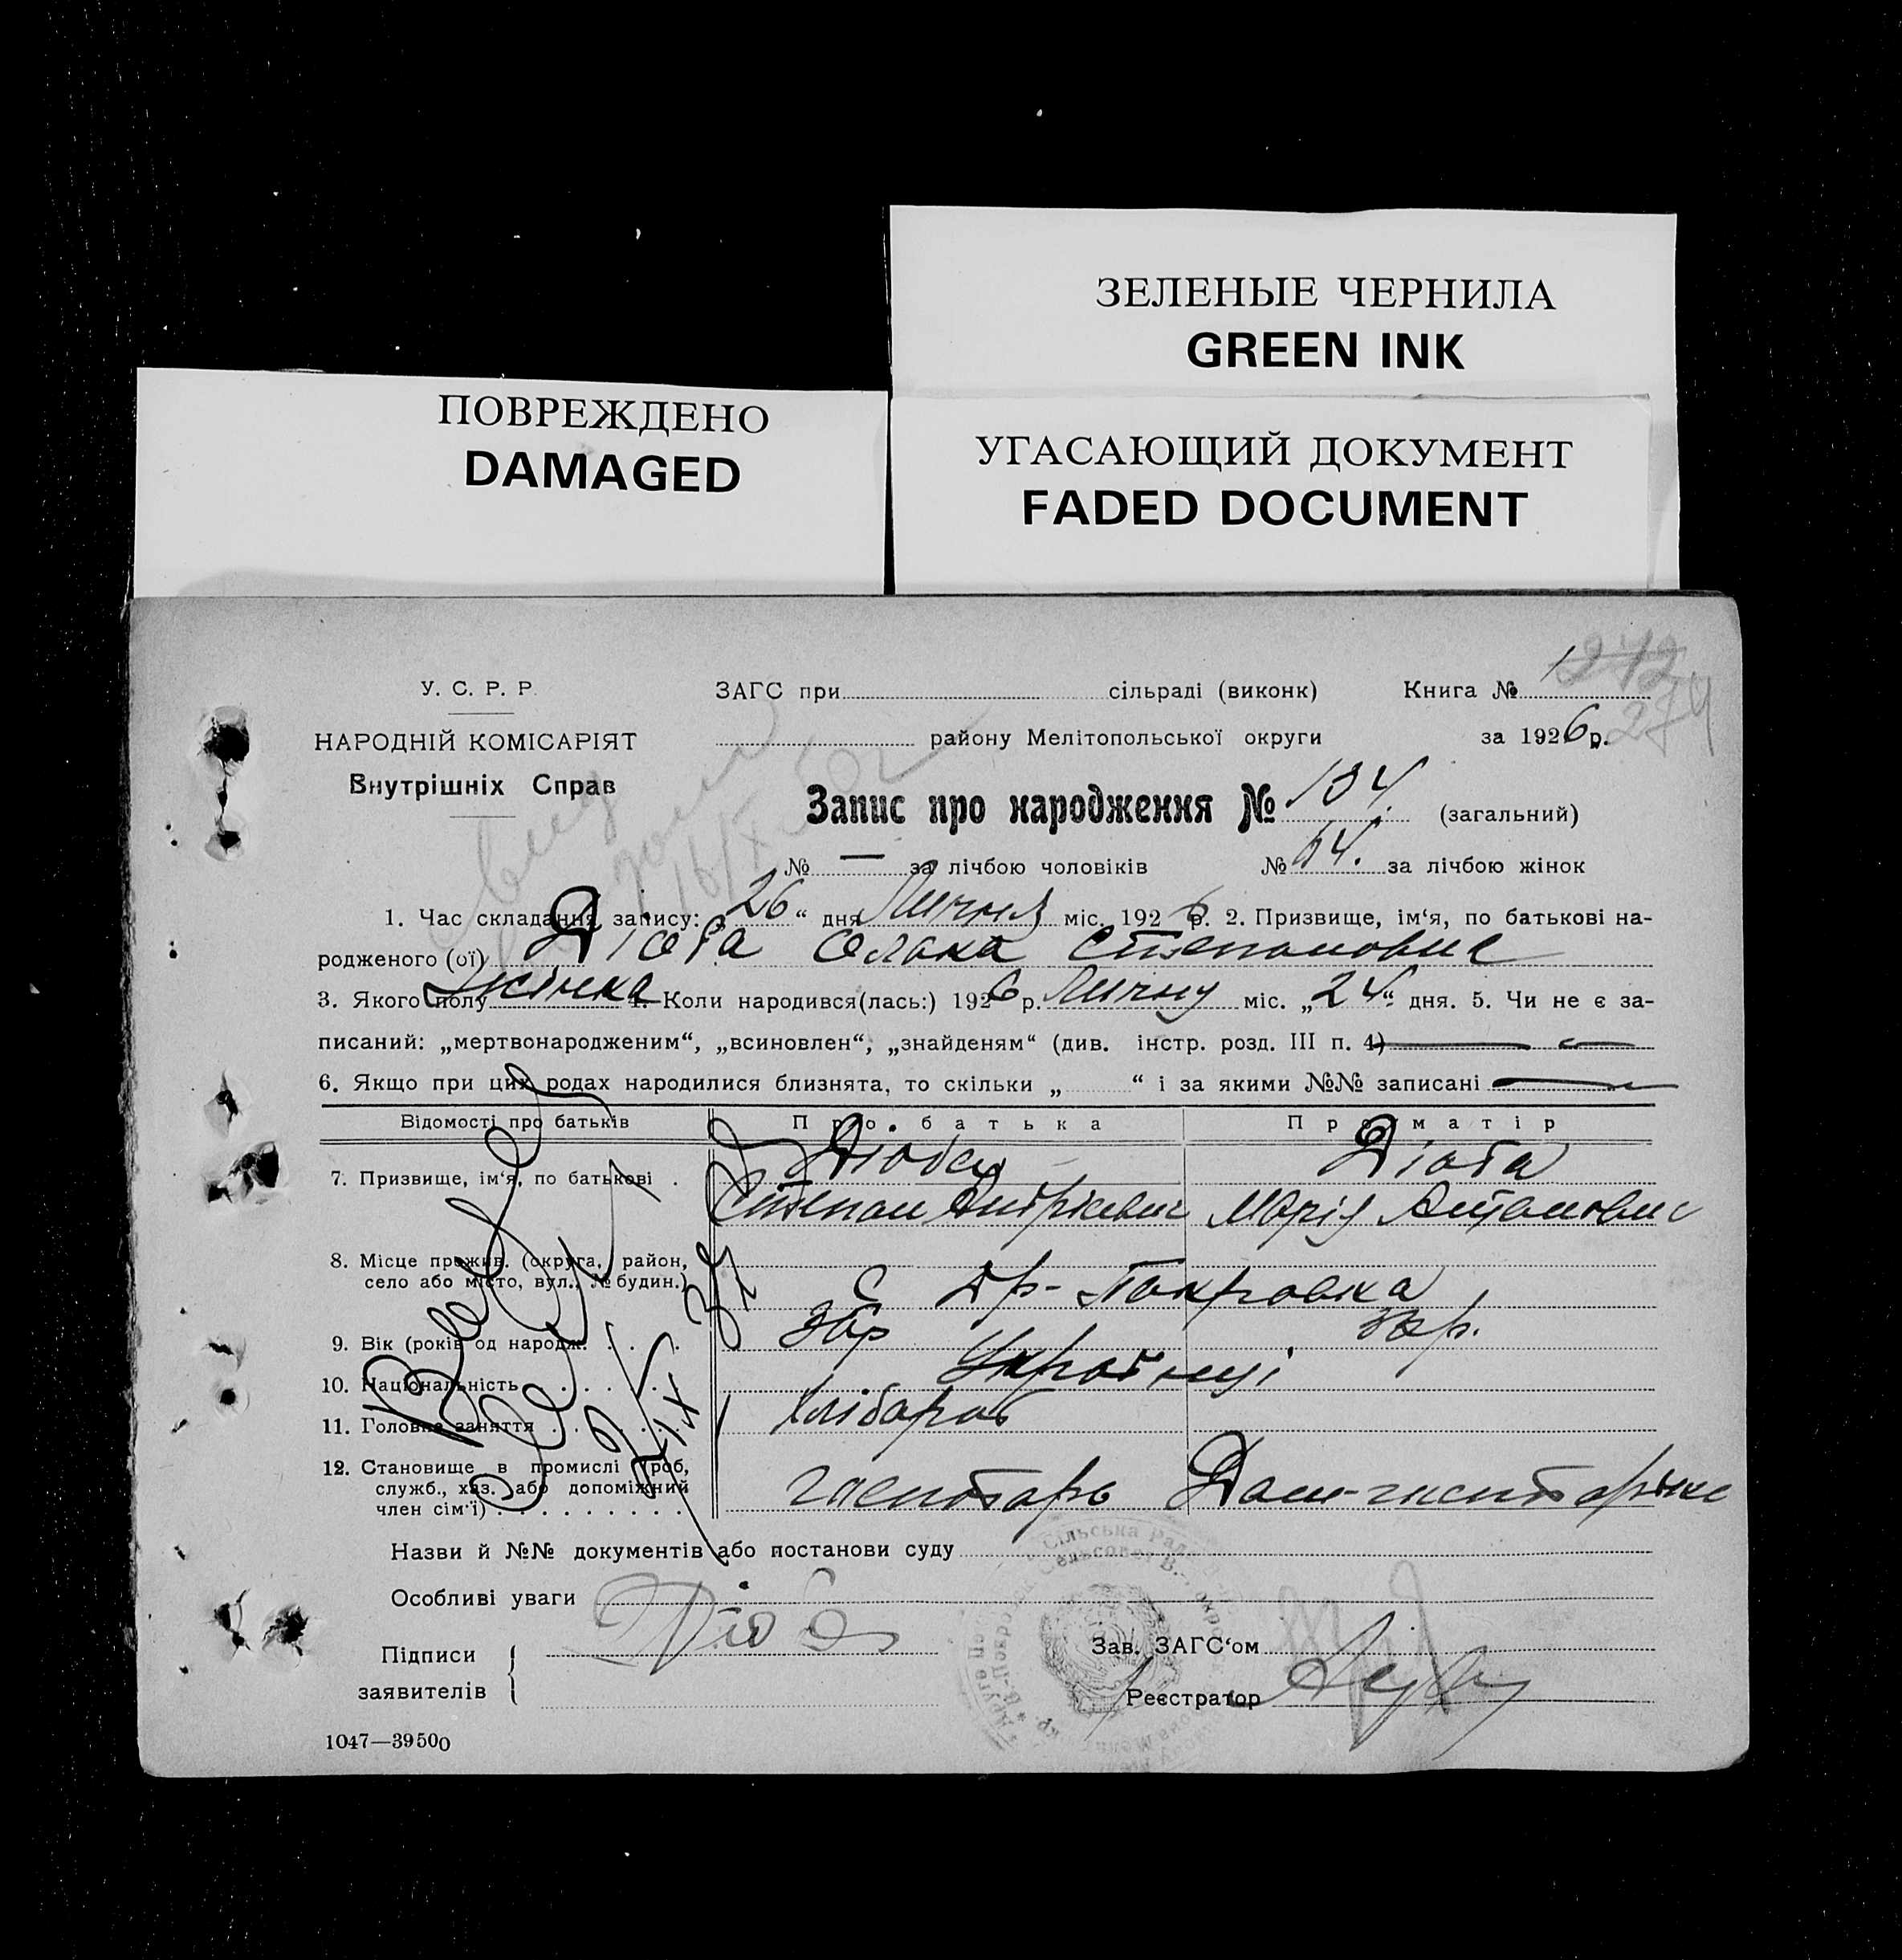 ЗЕЛЕНЫЕ ЧЕРНИЛА
GREEN INK
ПОВРЕЖДЕНО
DAMAGED
УГАСАЮЩИЙ ДОКУМЕНТ
FADED DOCUMENT
У. С. Р. Р.
ЗАГС при сільраді (виконк) Книга №
274
НАРОДНІЙ КОМІСАРІЯТ
району Мелітопольської округи за 1926 р.
Внутрішніх Справ
Запис про народження № 134. (загальний)
№ — за лічбою чоловіків № 64. за лічбою жінок
1. Час складання запису: „26“ дня Липня міс. 1926 р. 2. Призвище, ім‘я, по батькові на-
родженого (ої) Діоба Степановна
3. Якого полу жінка 4. Коли народився(лась:) 1926 р. Липню міс. „24“ дня. 5. Чи не є за-
писаний: „мертвонародженим“, „всиновлен“, „знайденям“ (див. інстр. розд. III п. 4)
6. Якщо при цих родах народилися близнята, то скільки „ “ і за якими №№ записані
Відомості про батьків Про батька Про матір
7. Призвище, ім‘я, по батькові . Діоба
Степан Марія
8. Місце прожив. (округа, район,
село або місто, вул., № будин.) с Вр-Покровка
9. Вік (років од народж. . . .
10. Національність . . . . Українці
11. Головне заняття . . . . . Хлібороб
12. Становище в промислі (роб,
служб., хаз. або допоміжний
член сім‘ї) . . . . . . . . . . господарь Дом-господарька
Назви й №№ документів або постанови суду
Особливі уваги
Підписи
заявителів
Діоба
Зав. ЗАГС‘ом
Реєстратор
1047—39500